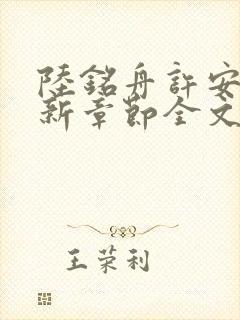 陸銘舟許安
新章節全文
王荣利